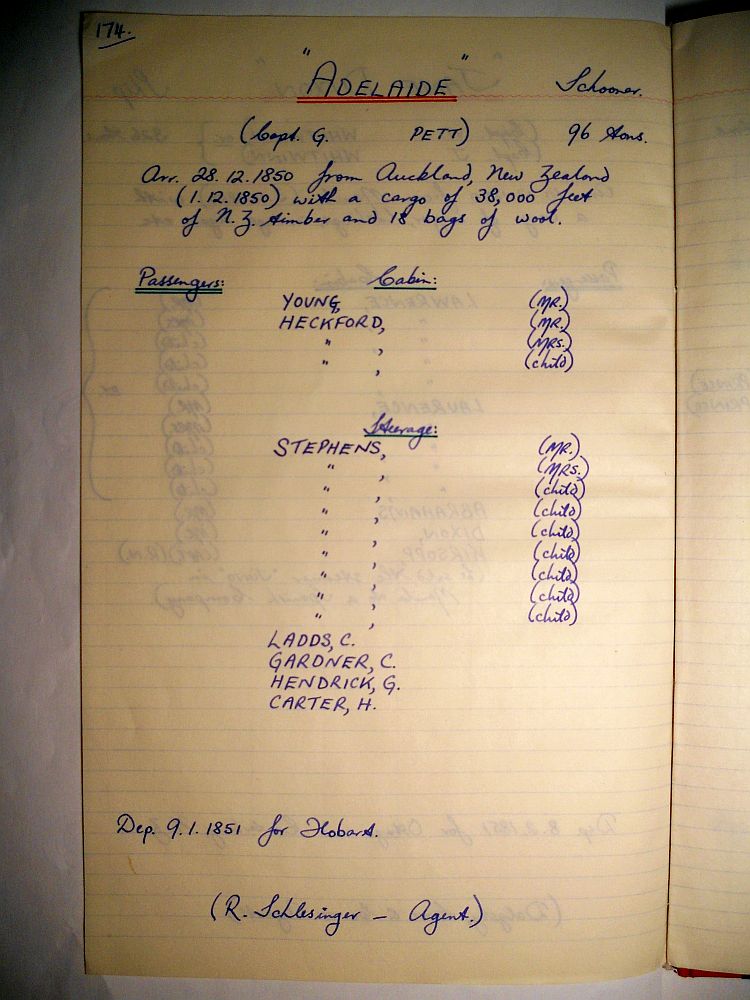 174.
"ADELAIDE" Schooner.
(Capt. G. PETT) 96 tons.
Arr. 28.12.1850 from Auckland, New Zealand
(1.12.1850) with a cargo of 38,000 feet
of N.Z. timber and 18 bags of wool.
Passengers: Cabin:
YOUNG, (MR.)
HECKFORD, (MR.)
" , (MRS.)
" , (child)
Steerage:
STEPHENS, (MR.)
" , (MRS.)
" , (child)
" , (child)
" , (child)
" , (child)
" , (child)
" , (child)
" , (child)
LADDS, C.
GARDNER, C.
HENDRICK, G.
CARTER, H.
Dep. 9.1.1851 for Hobart.
(R. Schlesinger - Agent.)